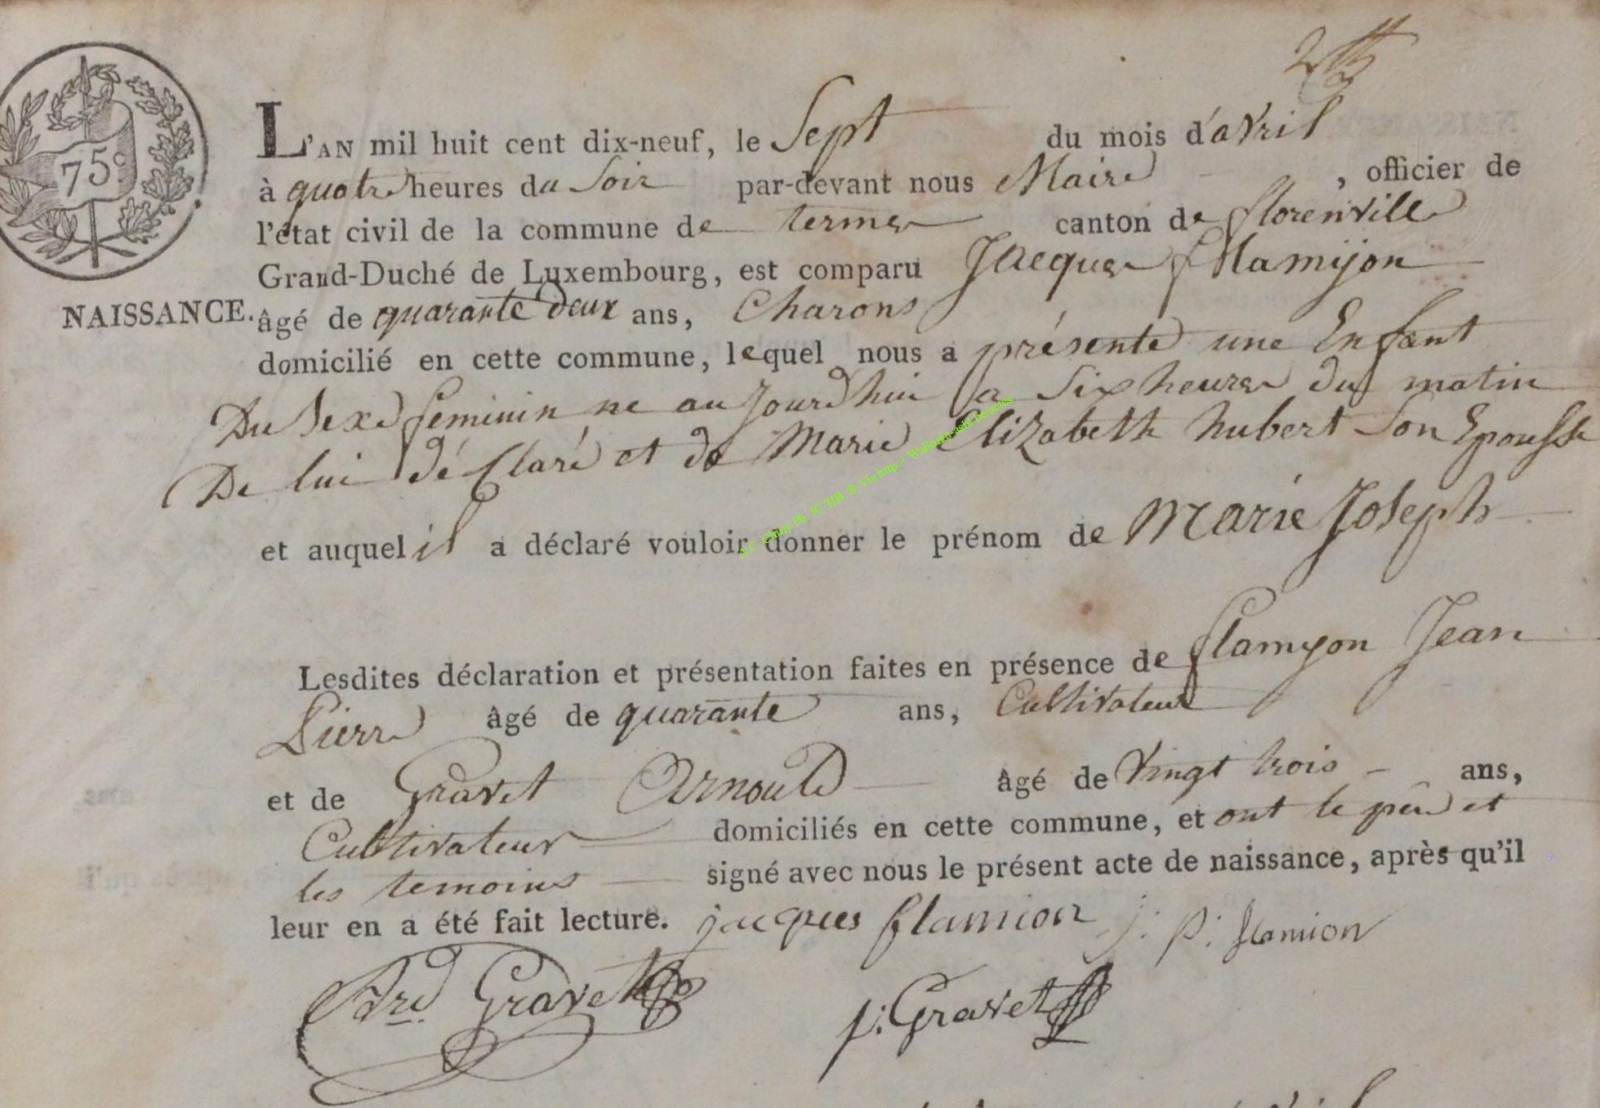 2
75c
L'AN mil huit cent dix-neuf, le Sept du mois d'avril
à quatre heures du Soir par-devant nous Maire , officier de
l'état civil de la commune de termes canton de florenville
Grand-Duché de Luxembourg, est comparu Jacques flamijon
NAISSANCE. âgé de quarante deux ans, Charons
domicilié en cette commune, lequel nous a présenté une Enfant
Du Sexe feminin ne aujourdhui a Six heures du matin
De lui déclaré et de Marie Elizabeth hubert Son Epousse
et auquel il a déclaré vouloir donner le prénom de Marie Joseph
Lesdites déclaration et présentation faites en présence de flamyon Jean
Pierre âgé de quarante ans, Cultivateur
et de Gravet Arnould âgé de vingt trois ans,
Cultivateur domiciliés en cette commune, et ont le père et
les temoins signé avec nous le présent acte de naissance, après qu'il
leur en a été fait lecture. jacques flamion j: p: flamion
Ard Gravet p: Gravet